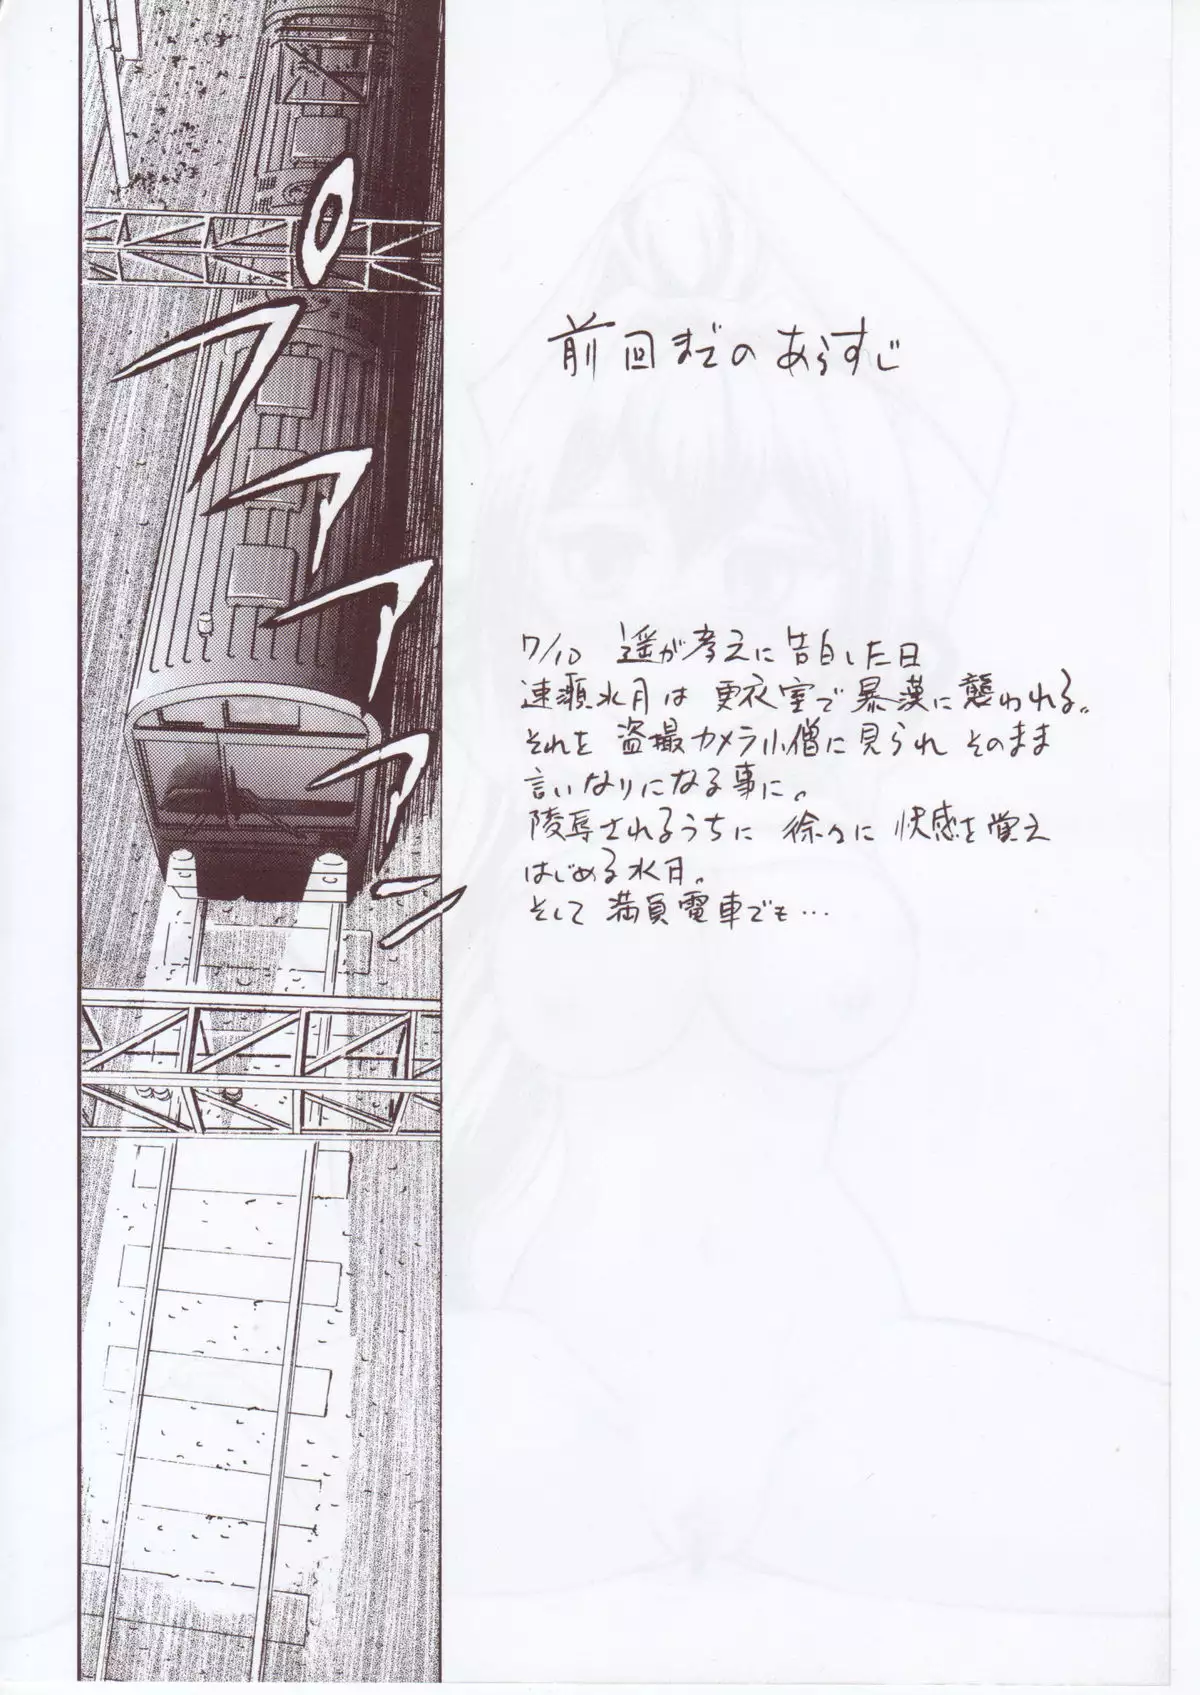 プァァァン
前回までのあらすじ
7/10 遥が孝之に告白した日
速瀬水月は 更衣室で暴漢に襲われる。
それを 盗撮カメラ小僧に見られ そのまま
言いなりになる事に。
陵辱されるうちに 徐々に 快感を覚え
はじめる水月。
そして 満員電車でも…